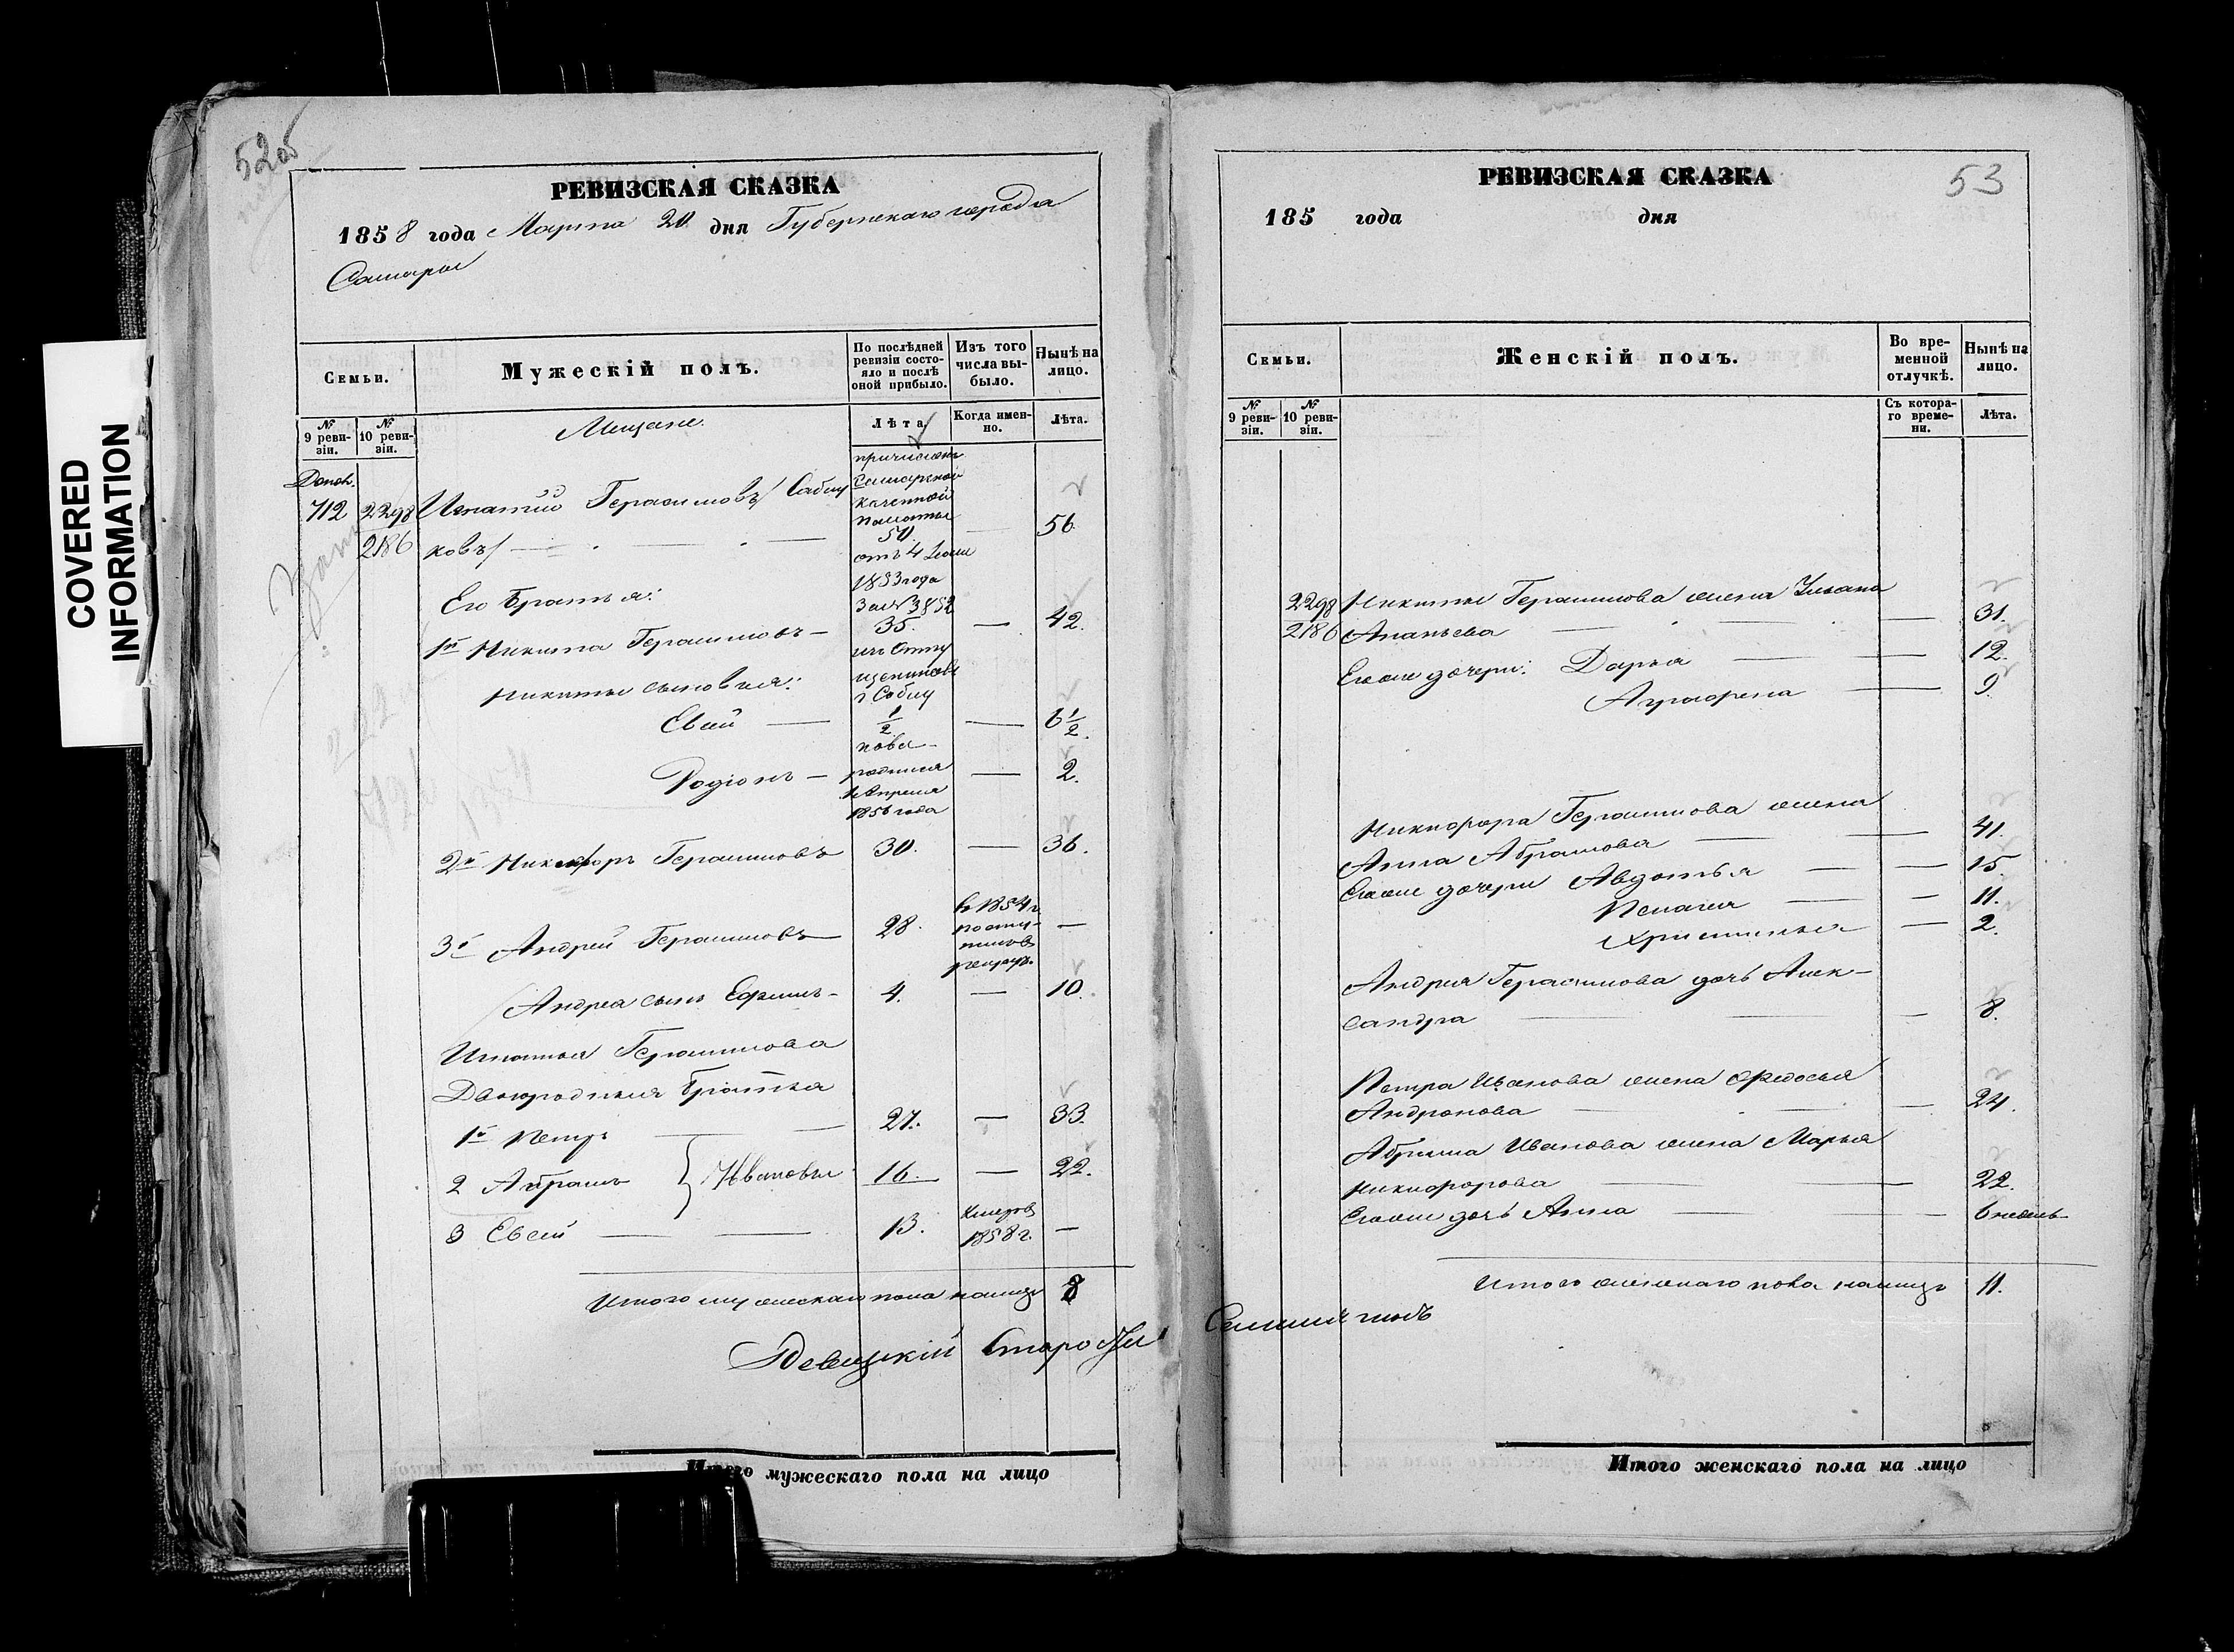 52об
РЕВИЗСКАЯ СКАЗКА
1858 года Марта 20 дня Губернскаго города
Самары
Семьи.
Мужескій полъ.
По послѣдней ревизіи состо-
яло и послѣ
оной прибыло.
Изъ того
числа вы-
было.
Нынѣ на
лицо.
№
9 реви-
зіи.
№
10 реви-
зіи.
Мещане.
Лѣта.
Когда имен-
но.
Лѣта.
Допол.
712
2298
2186
Игнатій Герасимовъ / Сабщ
ковъ /
причислен
Самарской
Казенной
Палаты
50.
отъ 4
1853 года
за № 3852
56.
Его братья:
1й Никита Герасимовъ
35.
42.
Никиты сыновья:
г Сабщ
Евсей
1/2
6 1/2.
Родіонъ
нова
родился
Апреля
1856 года
2.
2й Никифоръ Герасимовъ
30.
36.
3й Андрей Герасимовъ
28.
в 1854 г.
посту-
пилъ в
рекрут.
Андрея сынъ Ефимъ
4.
10.
Игнатья Герасимова
Двоюродныя братья
1й Петръ
27.
33.
2 Абрамъ } Ивановы
16.
22.
3 Евсей
13.
Умеръ
1858 г.
Итого мужескаго пола налицо 8
Ревизскій Староста
COVERED
INFORMATION
Итого мужескаго пола на лицо
53
РЕВИЗСКАЯ СКАЗКА
185 года дня
Семьи.
Женскій полъ.
Во вре-
менной
отлучкѣ.
Нынѣ на
лицо.
№
9 реви-
зіи.
№
10 реви-
зіи.
Съ котора-
го време-
ни.
Лѣта.
2298
2186
Никиты Герасимова жена Ульяна
Ананьева
31.
Егоже дочери: Дарья
12.
Аграфена
9.
Никифора Герасимова жена
Анна Абрамова
41.
Егоже дочери Авдотья
15.
Пелагея
11.
Христинья
2.
Андрея Герасимова дочь Алек-
сандра
8.
Петра Иванова жена Федосья
Андронова
24.
Абрама Иванова жена Марья
Никифорова
22.
Егоже дочь Анна
6 недель
Итого женскаго пола налицо 11.
Итого женскаго пола на лицо